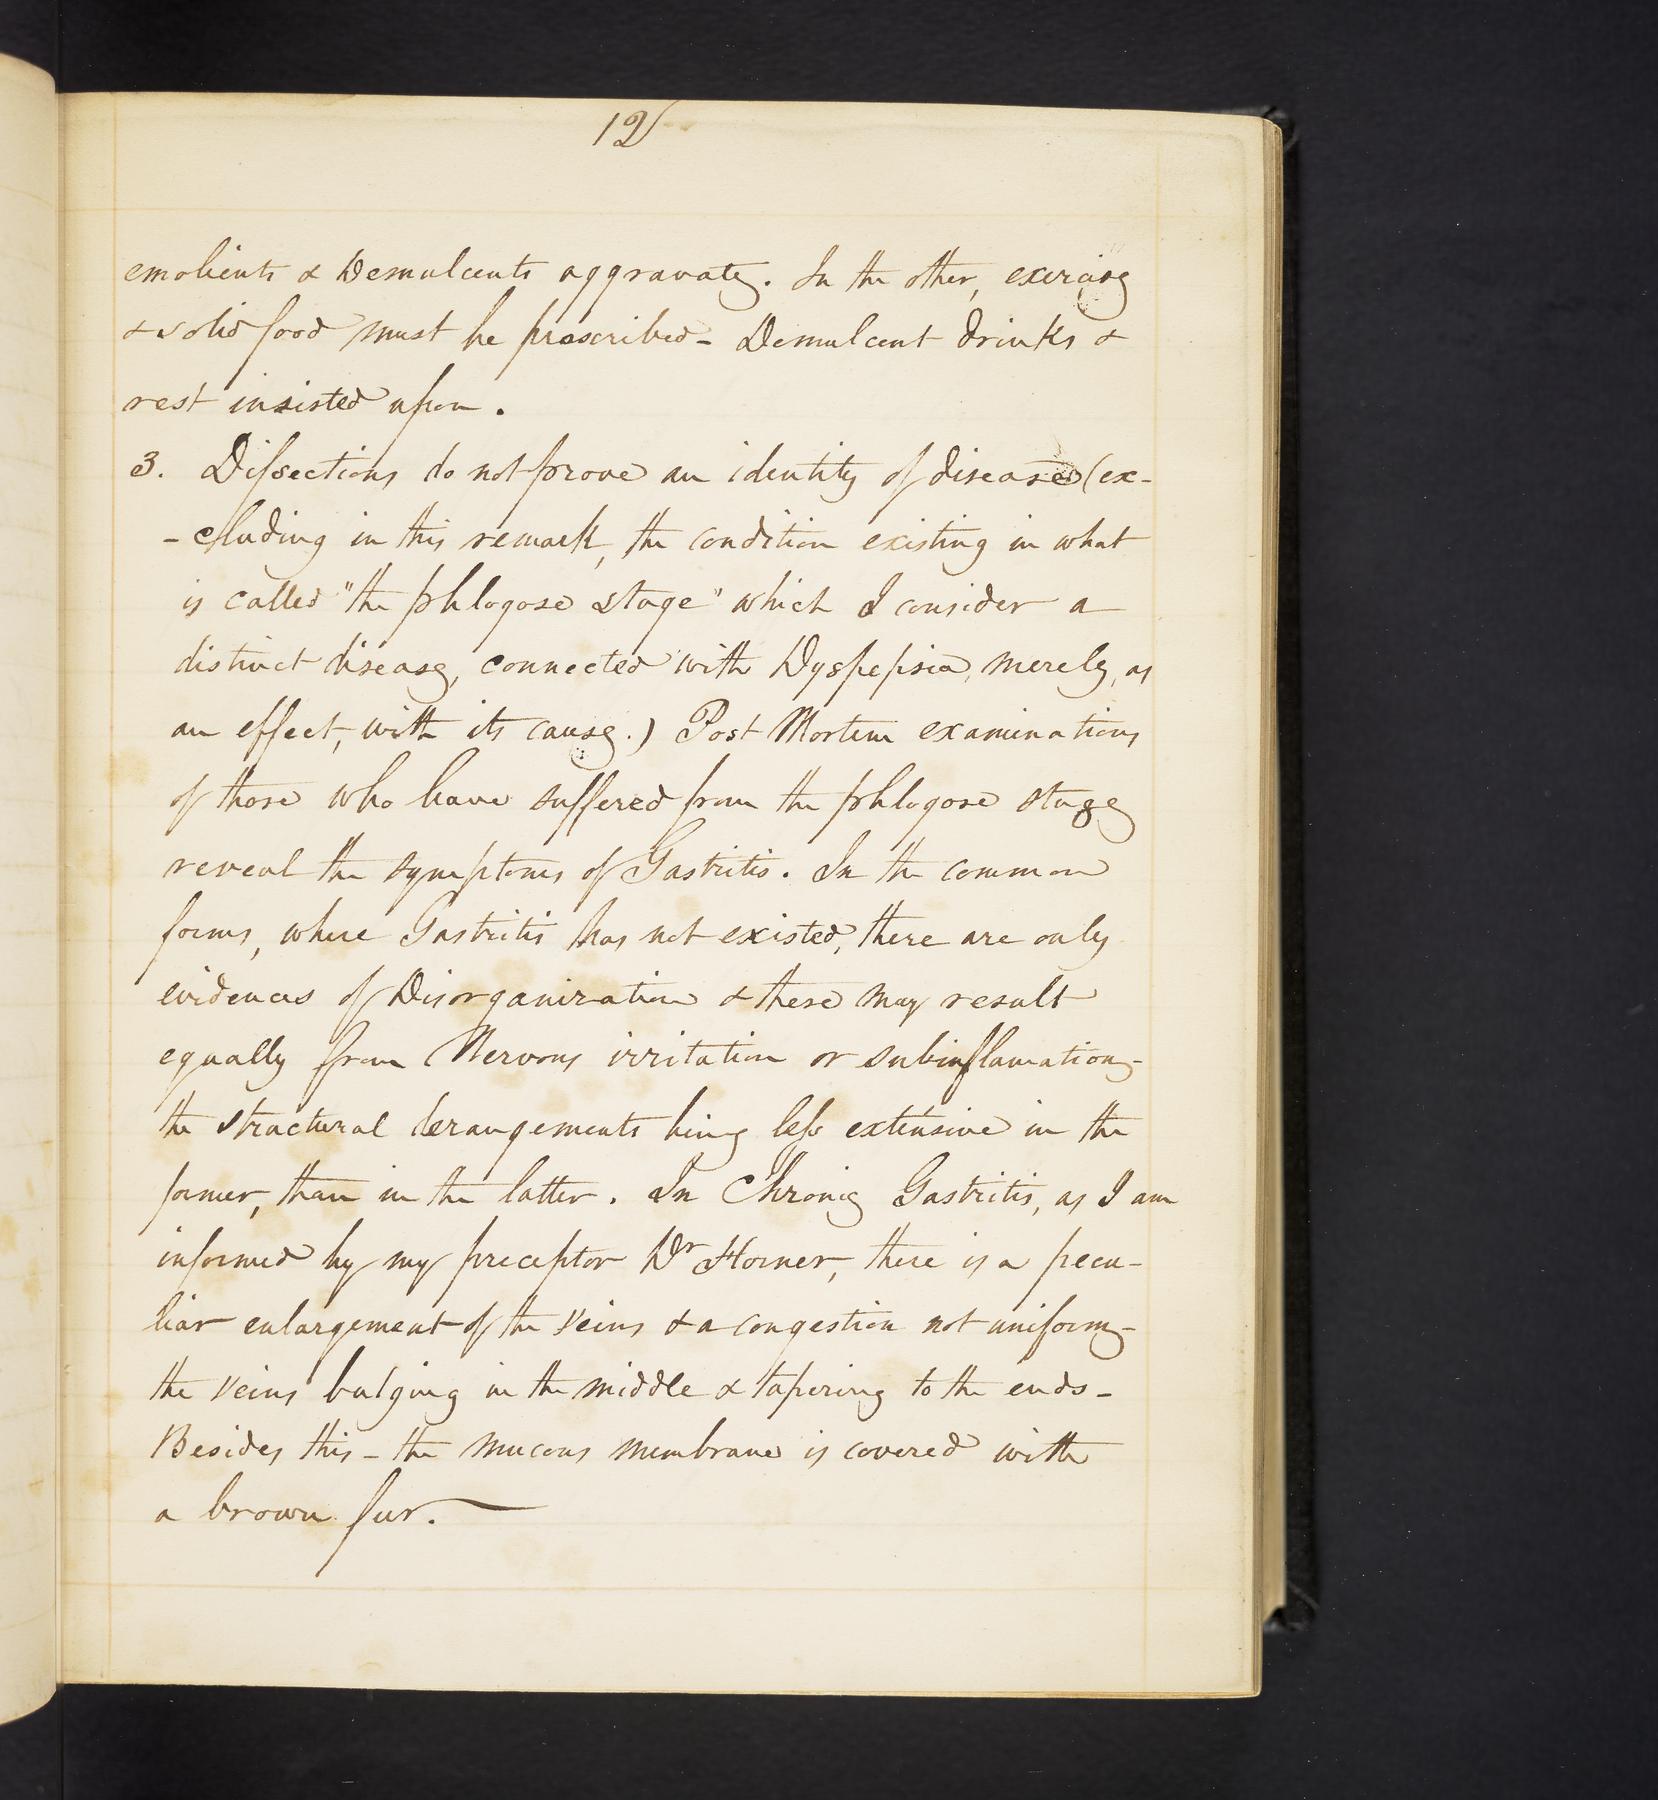 12
emolients & Demulcents aggravate. In the other, exercise
& solid food must be proscribed - Demulcent drinks &
rest insisted upon.
3. Dissections do not prove an identity of disease (ex-
- cluding in this remark, the condition existing in what
is called "the phlogose stage" which I consider a
distinct disease, connected with Dyspepsia, merely, as
an effect, with its cause.) Post Mortem examinations
of those who have suffered from the phlogose stage
reveal the symptoms of Gastritis. In the common
forms, where Gastritis has not existed, there are only
evidences of Disorganization & these may result
equally from Nervous irritation or subinflamation -
the structural derangements being less extensive in the
former, than in the latter. In Chronic Gastritis, as I am
informed by my preceptor Dr Horner, there is a pecu-
liar enlargement of the veins & a congestion not uniform -
the veins bulging in the middle & tapering to the ends -
Besides this - the mucous membrane is covered with
a brown fur. —